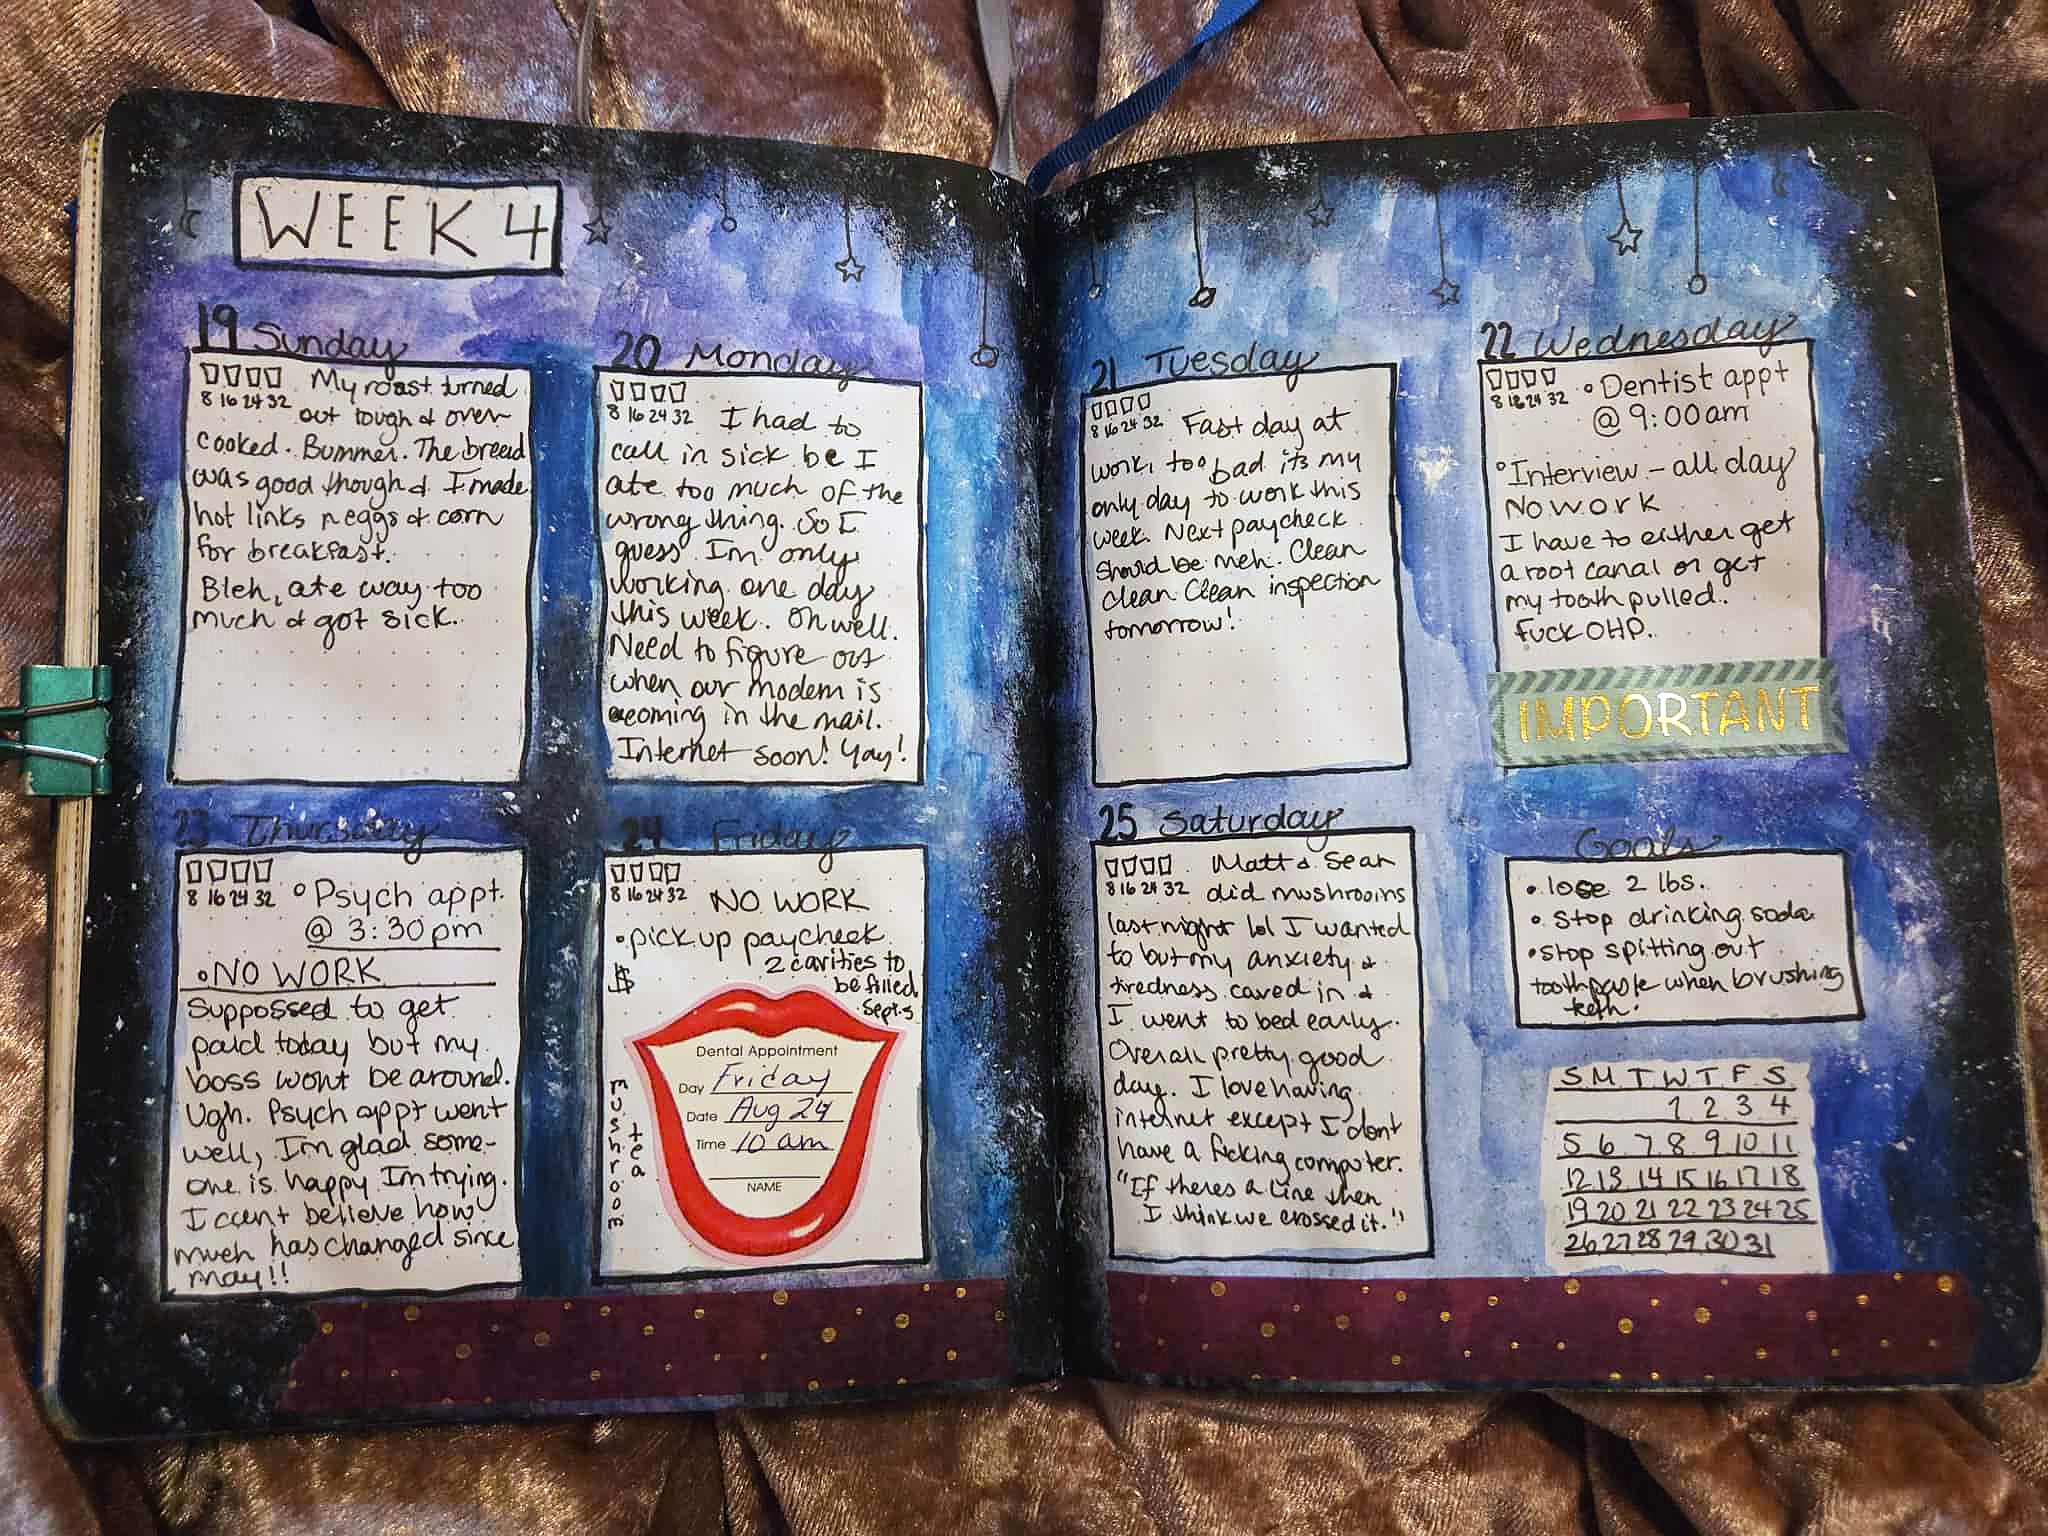 WEEK 4
19 Sunday
8 16 24 32 My roast turned
out tough & over
cooked. Bummer. The bread
was good though & I made
hot links n eggs & corn
for breakfast.
Bleh, ate way too
much & got sick.
20 Monday
8 16 24 32 I had to
call in sick bc I
ate too much of the
wrong thing. So I
guess Im only
working one day
this week. Oh well.
Need to figure out
when our modem is
coming in the mail.
Internet soon! Yay!
21 Tuesday
8 16 24 32 Fast day at
work, too bad its my
only day to work this
week. Next paycheck
should be meh. Clean
Clean Clean inspection
tomorrow!
22 Wednesday
8 16 24 32 Dentist appt
@ 9:00am
Interview - all day
No work
I have to either get
a root canal or get
my tooth pulled.
Fuck OHP.
IMPORTANT
23 Thursday
8 16 24 32 Psych appt.
@ 3:30pm
• NO WORK
Suppossed to get
paid today but my
boss wont be around.
Ugh. Psych appt went
well, Im glad some-
one is happy Im trying.
I cant believe how
much has changed since
may!!
24 Friday
8 16 24 32 NO WORK
• pick up paycheck
$
2 cavities to
be filled
Sept. 5
mushroom
tea
Dental Appointment
Day Friday
Date Aug 24
Time 10 am
NAME
25 Saturday
8 16 24 32 Matt & Sean
did mushrooms
last night lol I wanted
to but my anxiety &
tiredness caved in &
I went to bed early.
Overall pretty good
day. I love having
internet except I dont
have a fcking computer.
"If theres a line then
I think we crossed it."
Goals
• lose 2 lbs.
• stop drinking soda
• stop spitting out
toothpaste when brushing
teeth.
S M T W T F S
1 2 3 4
5 6 7 8 9 10 11
12 13 14 15 16 17 18
19 20 21 22 23 24 25
26 27 28 29 30 31